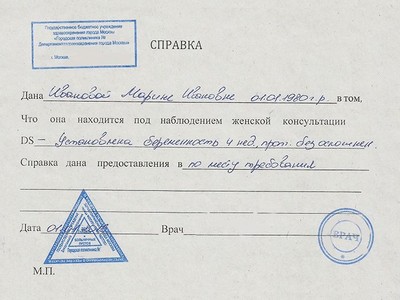 Государственное бюджетное учреждение
здравоохранения города Москвы
«Городская поликлиника №
Департамента здравоохранения города Москвы»
г. Москва
СПРАВКА
Дана Ивановой Марине Ивановне 01.01.1980 г.р. в том,
Что она находится под наблюдением женской консультации
DS – Установлена беременность 4 нед, прот. без осложнен.
Справка дана предоставления в по месту требования
Дата Врач
ВРАЧ
М.П.